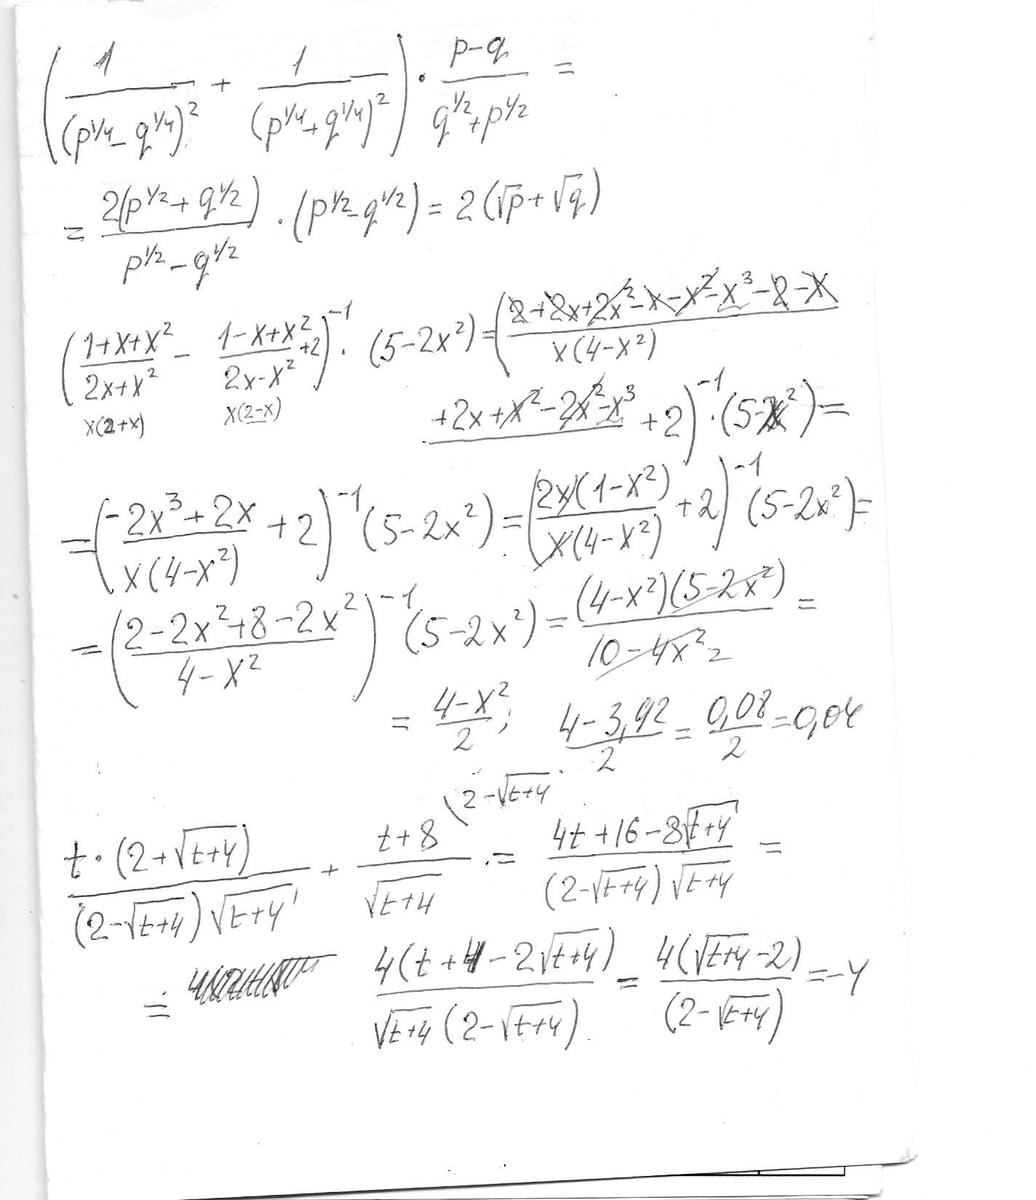 (1/(p^1/4 - q^1/4)^2 + 1/(p^1/4 + q^1/4)^2) · (p-q)/(q^1/2 + p^1/2) =
= 2(p^1/2 + q^1/2)/(p^1/2 - q^1/2) · (p^1/2 - q^1/2) = 2(√p + √q)
((1+x+x^2)/(2x+x^2) - (1-x+x^2)/(2x-x^2) + 2)^-1 · (5-2x^2) = ((2+2x+2x^2-x-x^2-x^3-2-x
x(2+x) x(2-x) x(4-x^2)
+2x+x^2-2x^2-x^3 + 2)^-1 · (5-2x^2) =
= ((-2x^3+2x)/(x(4-x^2)) + 2)^-1 (5-2x^2) = (2x(1-x^2)/(x(4-x^2)) + 2)^-1 (5-2x^2) =
= ((2-2x^2+8-2x^2)/(4-x^2))^-1 (5-2x^2) = (4-x^2)(5-2x^2)/(10-4x^2) =
= (4-x^2)/2; (4-3,92)/2 = 0,08/2 = 0,04
(2-√(t+4)
t·(2+√(t+4))/((2-√(t+4))√(t+4)) + (t+8)/√(t+4) · = (4t+16-8√(t+4))/((2-√(t+4))√(t+4)) =
= 4(t+4-2√(t+4))/(√(t+4)(2-√(t+4))) = 4(√(t+4)-2)/(2-√(t+4)) = -4